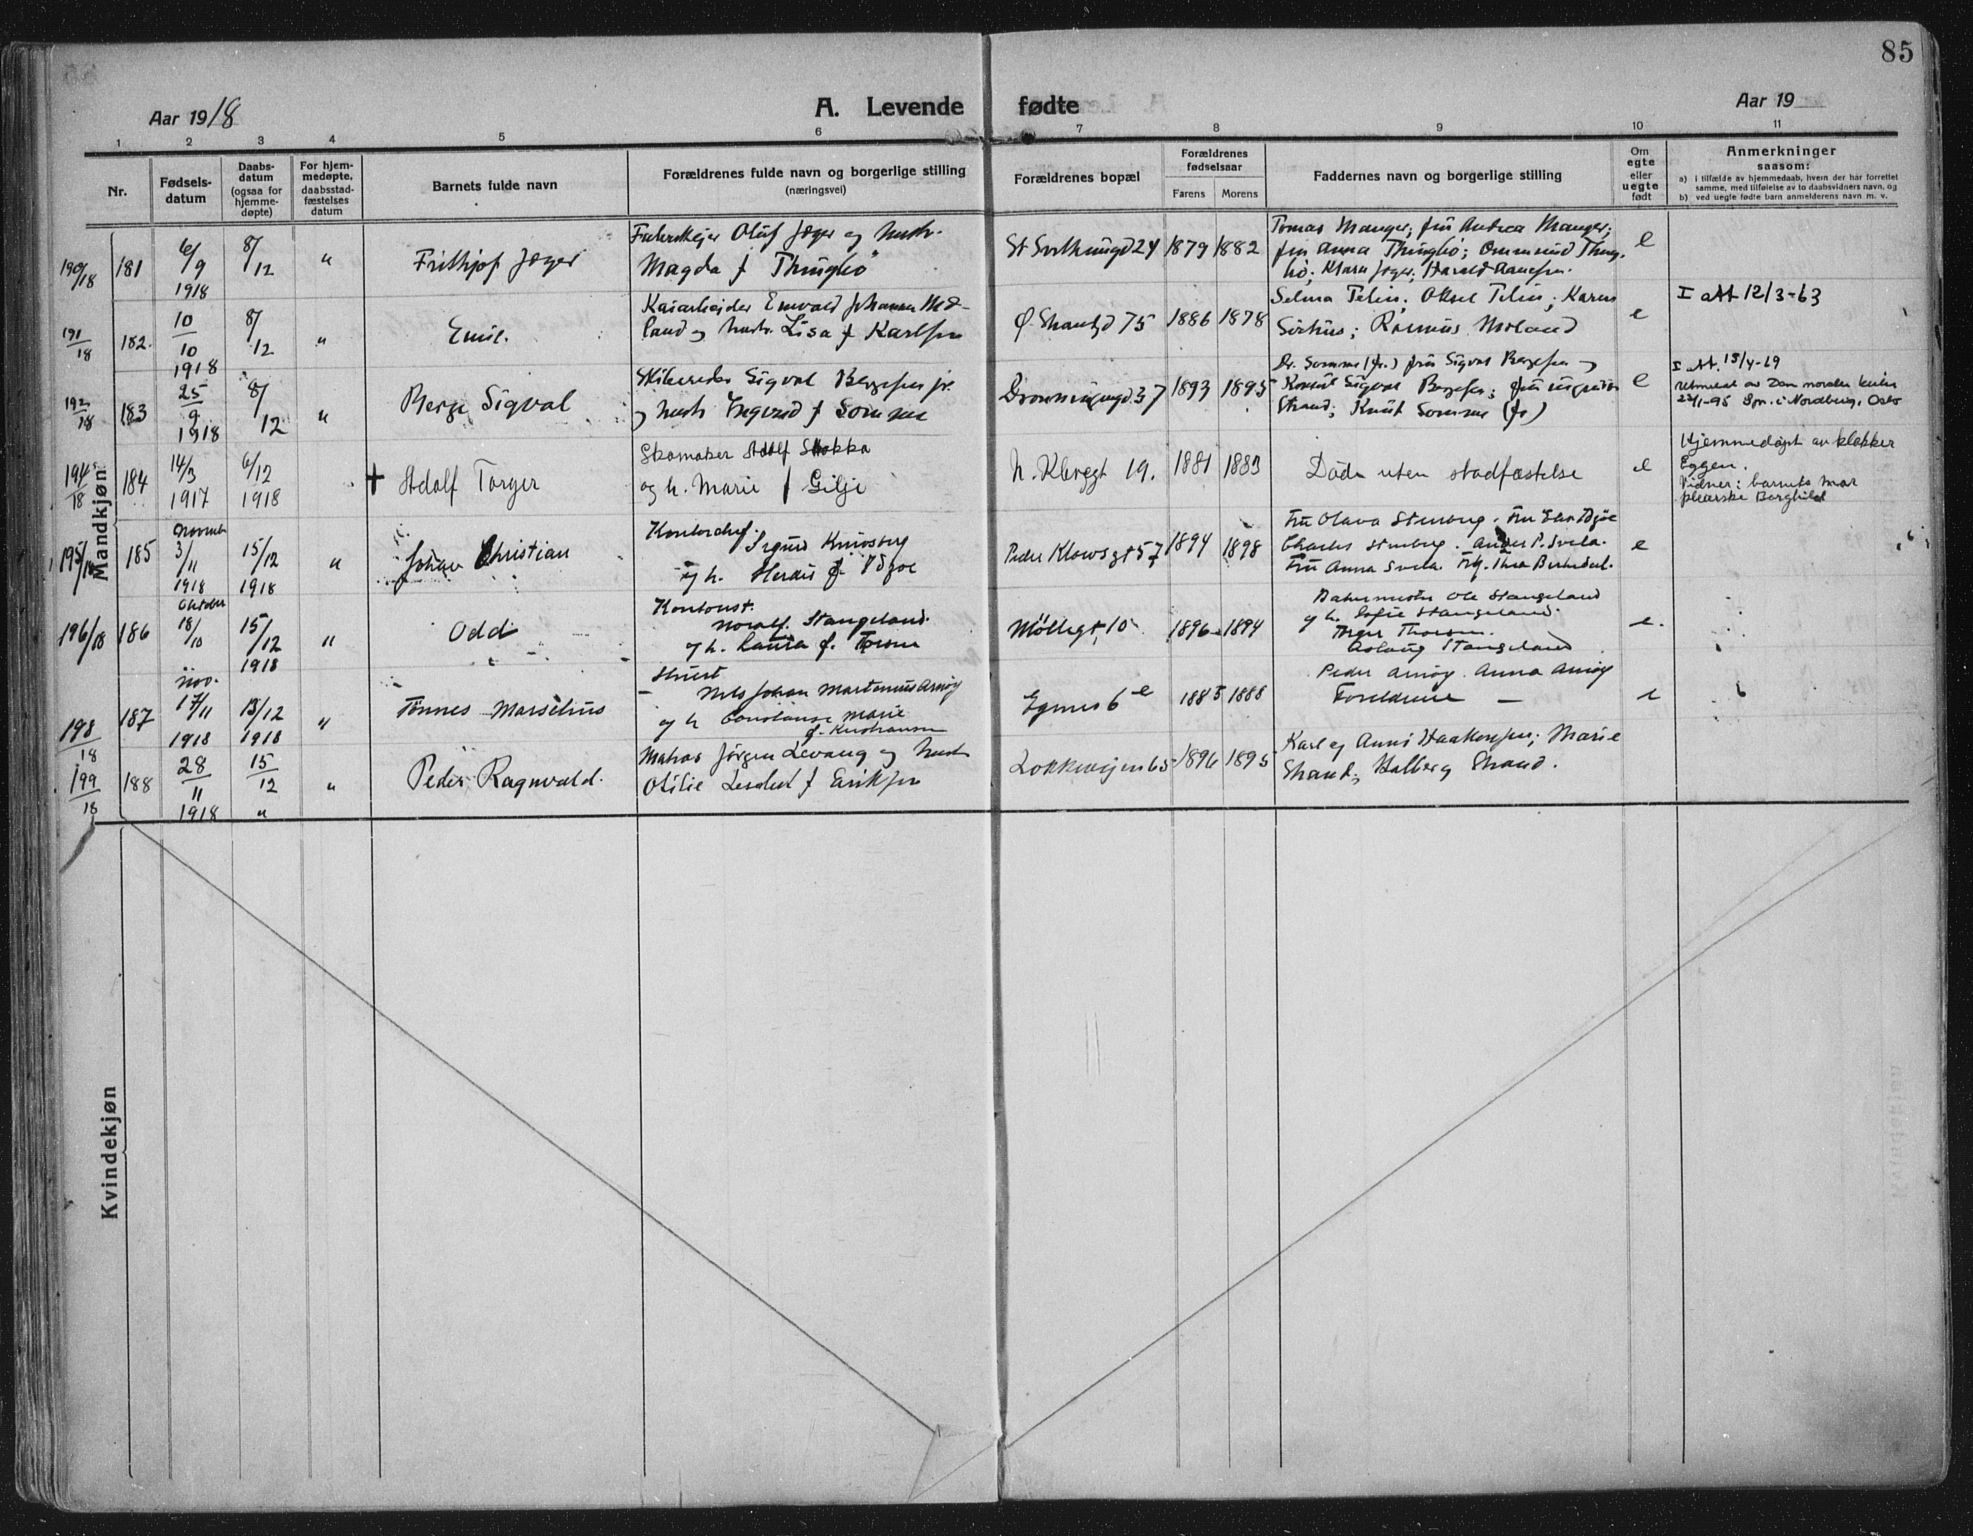 85
Aar 1918
A. Levende fødte
Aar 19
1 2 3 4 5 6 7 8 9 10 11
Nr.
Fødsels-
datum
Daabs-
datum
(ogsaa for
hjemme-
døpte)
For hjem-
medøpte.
daabsstad-
fæstelses
datum
Barnets fulde navn
Forældrenes fulde navn og borgerlige stilling
(næringsvei)
Forældrenes bopæl
Forældrenes
fødselsaar
Farens Morens
Faddernes navn og borgerlige stilling
Om
egte
eller
uegte
født
Anmerkninger
saasom:
a) i tilfælde av hjemmedaab, hvem der har forrettet
samme, med tilføielse av to daabsvidners navn, og
b) ved uegte fødte barn anmelderens navn m. v.
Mandkjøn
190/18 181 6/9 1918 8/12 "
Frithjof Jæger
Oluf Jæger og hustr.
Magda f Thingbø
24 1879 1882
Tomas Manger; fru Andrea Manger;
fru Anna Thingbø; Ommund Thing-
bø; Klara Jæger; Harald
e
191/18 182. 10/10 1918 8/12 "
Emil.
Kaiarbeider Johannes
land og hustr. Lisa f Karlsen
Ø. 75 1886 1878
Selma Telin; Aksel Telin; Karen
Rasmus
e
I att 12/3-63
192/18 183 25/9 1918 8/12 "
Berge Sigval
Skibsreder Sigval Bergesen jr.
og hustr Ingerid f Somme
37 1893 1895
Dr. Somme (fr.) fru Sigval Bergesen og
Konsul Sigval Bergesen; fru
Strand; Knut Somme (fr)
e
I At. 15/4-29
utmeldt av Den norske kirke
23/1-95 Spr. i Nordberg, Oslo
194/18 184 14/3 1917 6/12 1918
+ Adolf Torger
Skomaker Adolf Stokka
og h. Marie f Gilje
N. Klevgt 19. 1881 1883
Døde uten stadfæstelse
e
Hjemmedøpt av klokker
Eggen.
Vidner: barnets mor
pleierske Borghild
195/18 185 november 3/11 1918 15/12 1918 "
Johan Christian
Kontorchef.
Sigurd
og h. Herdis f.
Peder Klowsgt 57 1894 1898
Fru Olava Stenberg. Fru
Charles Stenberg. P. Svela.
Fru Anna Svela. Frk. Thea
e
196/18 186 Oktober 18/10 15/12 1918 "
Odd
Kontorist.
Noralf. Stangeland.
og h. Laura f. Torsen
Møllegt. 10 1896 1894
Ole Stangeland
og h. Sofie Stangeland.
Thorsen.
Aslaug Stangeland
e.
198/18 187 nov. 17/11 1918 13/12 1918 "
Tønnes Marselius
Nils Johan Martinius Arnøy
og h Constanse Marie
f. Kristiansen
Egenes 6 e 1885 1888
Peder Arnøy. Anna Arnøy
Foreldrene —
e
199/18 188 28/11 1918 15/12 " "
Peder Ragnvald.
Matros Jørgen Levang og hustr
Otilie f Eriksen
Lokkeveien 65 1896 1895
Karl og Anni Haakonsen; Marie
Strand; Strand.
Kvindekjøn